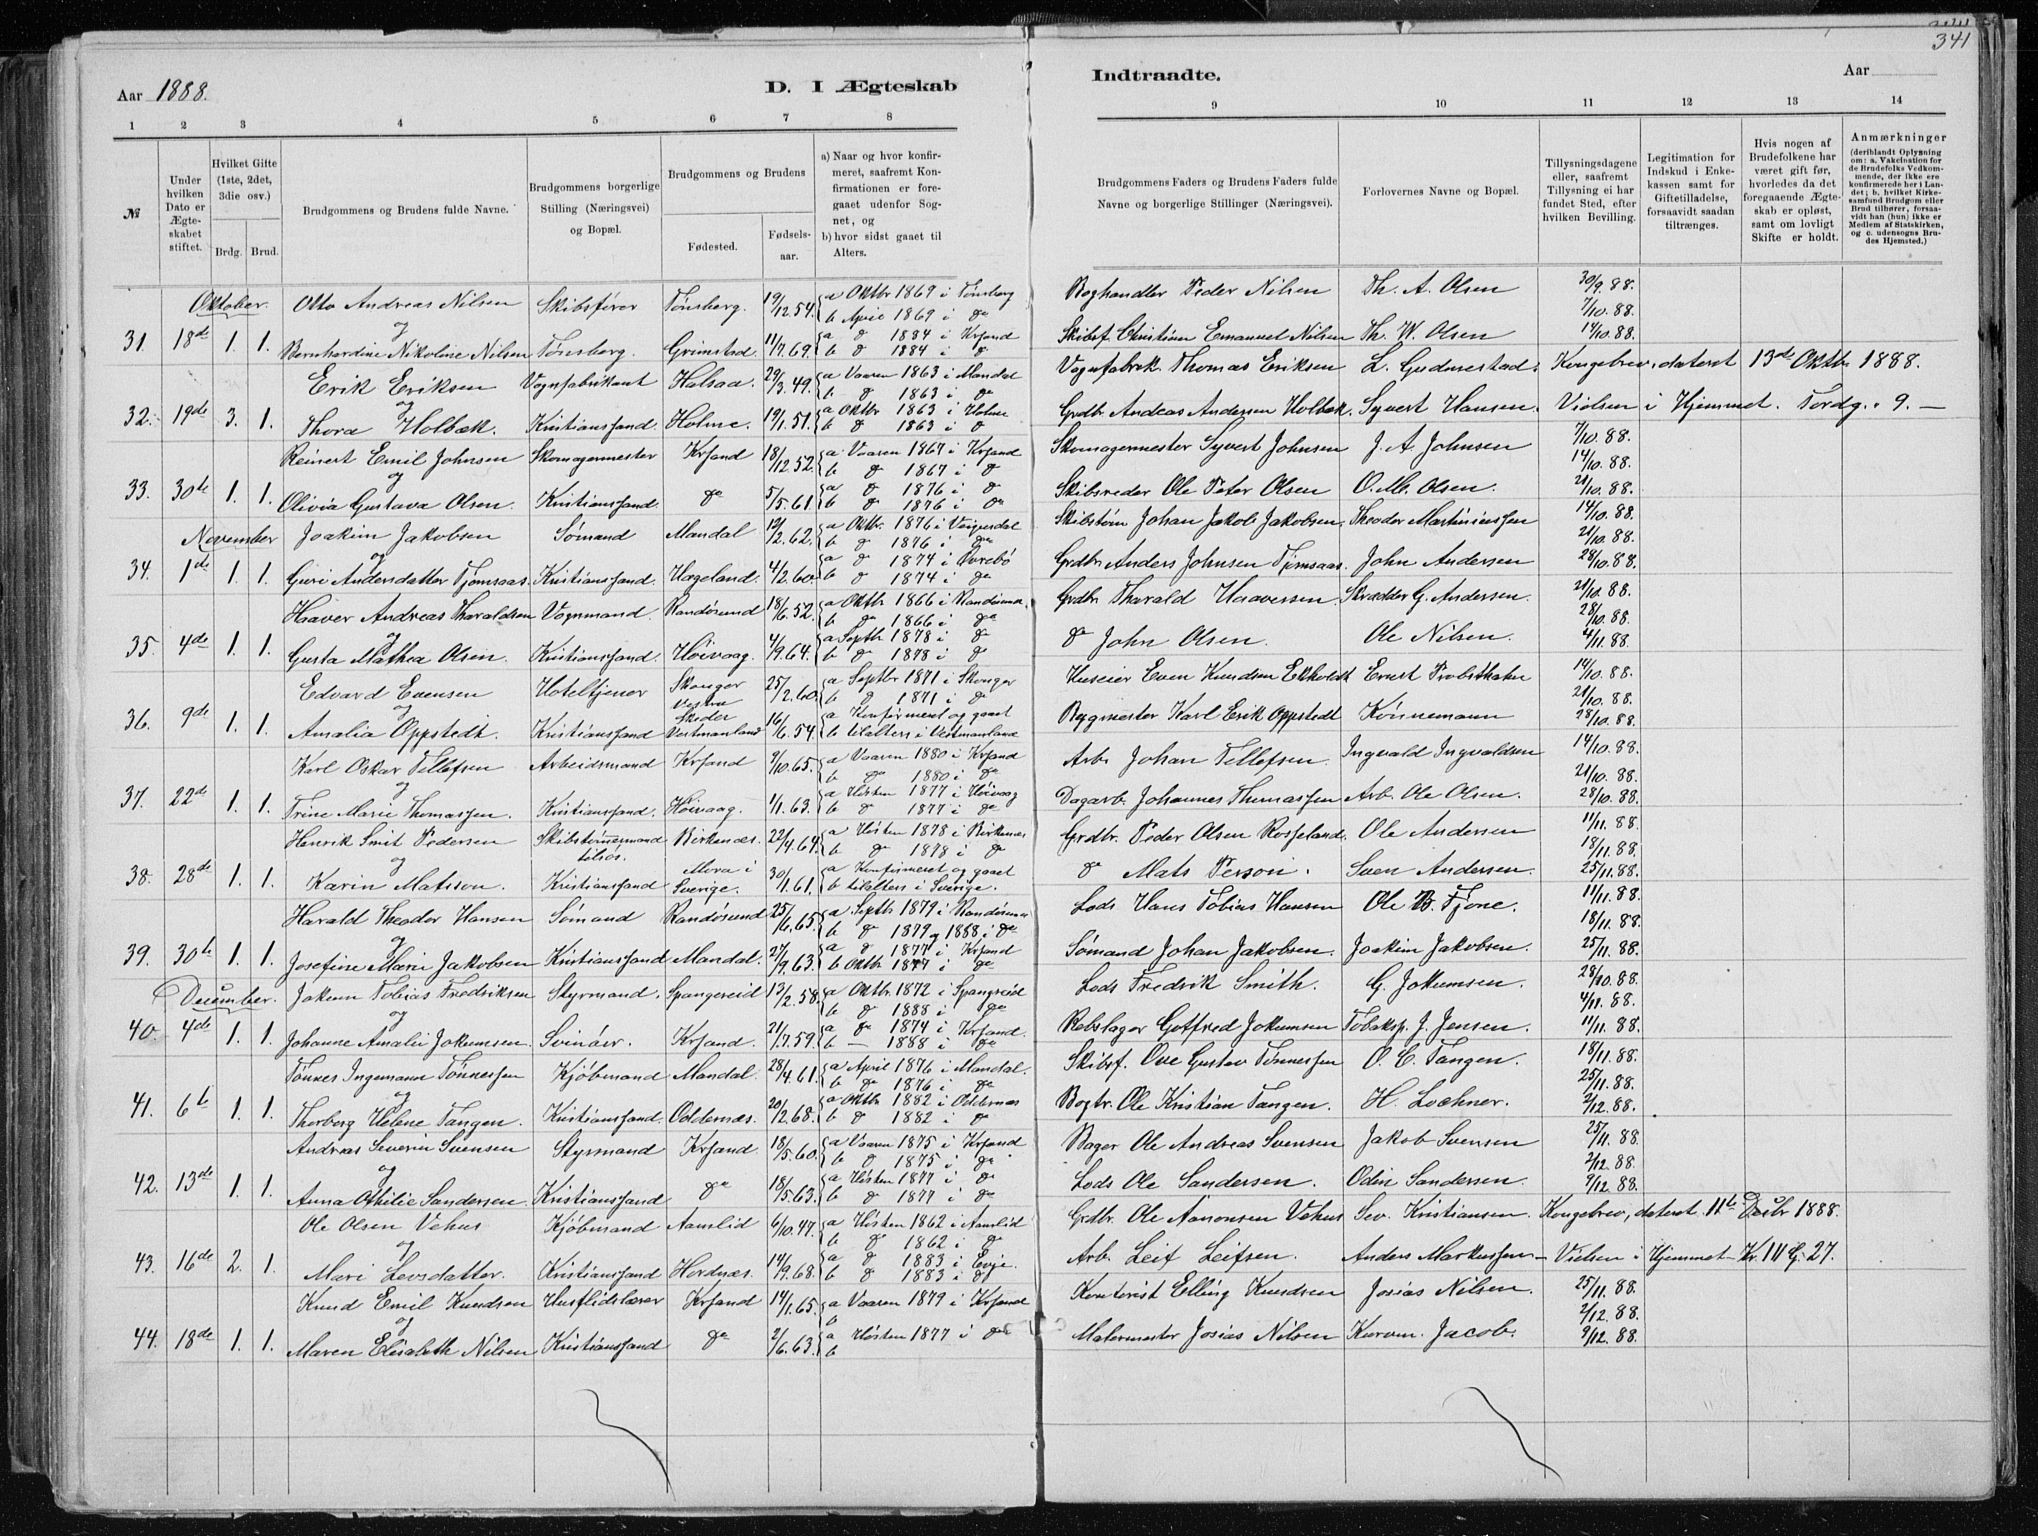 341
Aar 1888.
D. I Ægteskab Indtraadte.
Aar
1 2 3 4 5 6 7 8 9 10 11 12 13 14
№
Under hvilken Dato er Ægteskabet stiftet.
Hvilket Gifte (1ste, 2det, 3die osv.)
Brdg. Brud.
Brudgommens og Brudens fulde Navne.
Brudgommens borgerlige Stilling (Næringsvei) og Bopæl.
Brudgommens og Brudens
Fødested.
Fødselsaar.
a) Naar og hvor konfirmeret, saafremt Konfirmationen er foregaaet udenfor Sognet, og
b) hvor sidst gaaet til Alters.
Brudgommens Faders og Brudens Faders fulde Navne og borgerlige Stillinger (Næringsvei).
Forlovernes Navne og Bopæl.
Tillysningsdagene eller, saafremt Tillysning ei har fundet Sted, efter hvilken Bevilling.
Legitimation for Indskud i Enkekassen samt for Giftetilladelse, forsaavidt saadan tiltrænges.
Hvis nogen af Brudefolkene har været gift før, hvorledes da det foregaaende Ægteskab er opløst, samt om lovligt Skifte er holdt.
Anmærkninger
(deriblandt Oplysning om: a. Vakcination for de Brudefolks Vedkommende, der ikke ere konfirmerede her i Landet; b. hvilket Kirkesamfund Brudgom eller Brud tilhører, forsaavidt han (hun) ikke er Medlem af Statskirken, og c. udensogns Brudes Hjemsted.)
Oktober. Otto Andreas Nilsen Skibsfører Tønsberg. 19/12.54. a Oktbr 1869 i Tønsberg b April 1869 i do Boghandler Peder Nilsen Th. A. Olsen 30/9.88. 7/10.88.
31. 18de 1. 1. og Bernhardine Nikoline Nilsen Tønsberg. Grimstad. 11/7.69. a do 1884 i Krsand b do 1884 i do Skibsf. Christian Emanuel Nilsen Th. W. Olsen 14/10.88.
Erik Eriksen Vognfabrikant Halsaa. 29/3.49. a Vaaren 1863 i Mandal b do 1863 i do Vognfabrik. Thomas Eriksen L. Gudmestad. Kongebrev, dateret 13de Oktbr. 1888.
32. 19de 3. 1. og Thora Holbæk. Kristianssand. Holme. 19/1.51. a Oktbr 1863 i Holme b do 1863 i do Grdbr. Andreas Andersen Holbæk. Syvert Hansen. Vielsen i Hjemmet. Fordg. 9. —
Reinert Emil Johnsen Skomagermester Krsand 18/12.52. a Vaaren 1867 i Krsand b do 1867 i do Skomagermester Syvert Johnsen J. A. Johnsen 7/10.88. 14/10.88.
33. 30te 1. 1. og Olivia Gustava Olsen. Kristianssand. do 5/5.61. a do 1876 i do b do 1876 i do Skibsreder Ole Peter Olsen O. M. Olsen. 21/10.88.
November Joakim Jakobsen Sømand Mandal 12/2.62. a Oktbr. 1876 i b do 1876 i do Skibstøm. Johan Jakob Jakobsen. Theodor Martiniussen 14/10.88. 21/10.88.
34. 1ste 1. 1. og Guri Andersdatter Tjomsaas. Kristianssand. Hægeland. 4/2.60. a do 1874 i Øvrebø b do 1874 i do Grdbr. Anders Johnsen Tjomsaas. John Andersen 28/10.88.
Haaver Andreas Tharaldsen Vognmand. Randøsund. 18/6.52. a Oktbr 1866 i Randøsund b do 1866 i do Grdbr. Tharald Haaversen. Skrædder G. Andersen. 21/10.88. 28/10.88.
35. 4de 1. 1. og Gusta Mathea Olsen. Kristianssand. Høivaag. 4/9.64. a Septbr 1878 i do b do 1878 i do do John Olsen. Ole Nilsen. 4/11.88.
Edvard Evensen Hoteltjener Skonger 25/2.60. a Septbr 1871 i Skonger b do 1871 i do Huseier Even Knudsen Ekholdt Ernst Probsthahn 14/10.88. 21/10.88.
36. 9de 1. 1. og Amalia Oppstedt. Kristianssand Vestra Skeder Vestmanland 16/6.54. a Konfirmeret og gaaet b tilalters i Vestmanland Bygmester Karl Erik Oppstedt Könnemann 28/10.88.
Karl Oskar Tellefsen Arbeidsmand Krsand 9/10.65. a Vaaren 1880 i Krsand b do 1880 i do Arb. Johan Tellefsen. Ingvald Ingvaldsen 14/10.88. 21/10.88.
37. 22de 1. 1. og Trine Marie Thomassen. Kristianssand. Høivaag. 1/1.63. a Høsten 1877 i Høivaag b do 1877 i do Dagarb. Johannes Thomassen Arb. Ole Olsen. 28/10.88.
Henrik Smit Pedersen Skibstømmermand tilsøs. Birkenæs. 22/4.64. a Høsten 1878 i Birkenæs b do 1878 i do Grdbr. Peder Olsen Rosseland. Ole Andersen 11/11.88. 18/11.88.
38. 28de 1. 1. og Karin Matsson. Kristianssand Mora i Sverige. 30/1.61. a Konfirmeret og gaaet b tilalters i Sverige. do Mats Person. Sven Andersen. 25/11.88.
Harald Theodor Hansen Sømand Randøsund 25/6.65. a Septbr 1879 i Randøsund b do 1879 og 1888 i do Lods Hans Tobias Hansen Ole B. Fjone. 11/11.88. 18/11.88.
39. 30te 1. 1. og Josefine Marie Jakobsen Kristianssand Mandal. 27/9.63. a do 1877 i Krsand b Oktbr 1877 i do Sømand Johan Jakobsen. Joakim Jakobsen. 25/11.88.
December. Jakum Tobias Fredriksen Styrmand. Spangereid 13/2.58. a Oktbr. 1872 i Spangreid b do 1888 i do Lods Fredrik Smith. G. Jokumsen. 28/10.88. 4/11.88.
40. 4de 1. 1. og Johanne Amalie Jokumsen. Svinør. Krsand. 21/7.59. a do 1874 i Krsand. b — 1888 i do Rebslager Gotfred Jokumsen Tobaksp. J. Jensen. 11/11.88.
Tønnes Ingemann Tønnessen Kjøbmand Mandal. 28/4.61. a April 1876 i Mandal. b do 1876 i do Skibsf. Ove Gustav Tønnessen O. C. Tangen. 18/11.88. 25/11.88.
41. 6te 1. 1. og Thorborg Helene Tangen. Kristianssand. Oddernæs. 20/2.68. a Oktbr 1882 i Oddernæs b do 1882 i do Bogtr. Ole Kristian Tangen. H. Lochner. 2/12.88.
Andreas Severin Svensen Styrmand Krsand. 18/5.60. a Vaaren 1875 i Krsand b do 1875 i do Bager Ole Andreas Svensen Jakob Svensen 25/11.88. 2/12.88.
42. 13de 1. 1. og Anna Othilie Sandersen. Kristianssand do 18/5.63. a Høsten 1877 i do b do 1877 i do Lods Ole Sandersen. Odin Sandersen. 9/12.88.
Ole Olsen Vehus Kjøbmand Aamlid 6/10.47. a Høsten 1862 i Aamlid b do 1862 i do Grdbr. Ole Aanonsen Vehus Sev. Kristiansen. Kongebrev, dateret 11te Decbr 1888.
43. 16de 2. 1. og Mari Levsdatter. Kristianssand Hordnæs. 14/9.68. a do 1883 i Evje. b do 1883 i do Arb. Leif Leifsen. Anders Markussen — Vielsen i Hjemmet — Kr. III G. 27.
Knud Emil Knudsen Husflidslærer Krsand 14/1.65. a Vaaren 1879 i Krsand b Kontorist Elling Knudsen Josias Nilsen. 25/11.88. 2/12.88.
44. 18de 1. 1. og Maren Elisabeth Nilsen Kristianssand do 2/6.63. a Høsten 1877 i do b Malermester Josias Nilsen Jacob. 9/12.88.